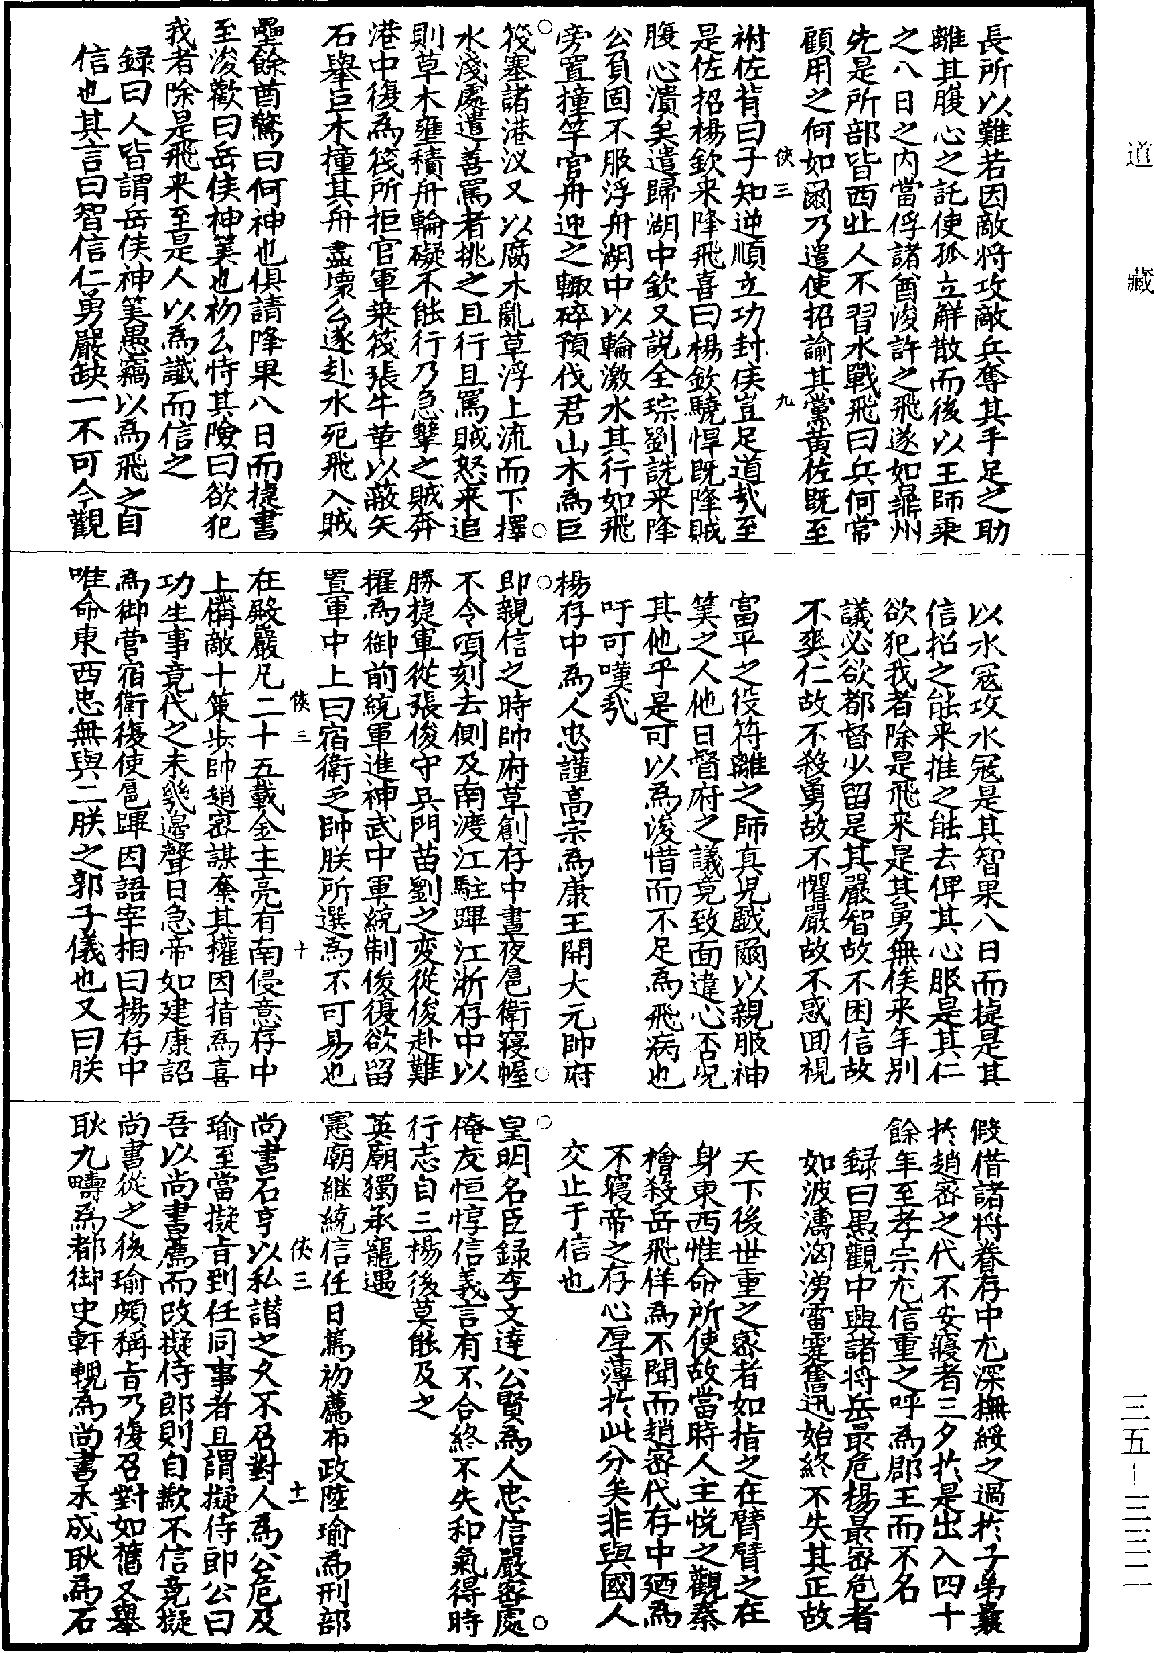 道藏
三五—三三二
長所以難若因敵將攻敵兵奪其手足之助
離其腹心之託使孤立觧散而後以王師乘
之八日之内當俘諸酋浚許之飛遂如鼎州
先是所部皆西北人不習水戰飛曰兵何常
顧用之何如爾乃遣使招諭其黨黄佐既至
俠三 九
拊佐背曰子知逆順立功封侯豈足道㦲至
是佐招楊欽来降飛喜曰楊欽驍悍既降賊
腹心潰矣遣歸湖中欽又説全琮劉詵来降
公負固不服浮舟湖中以輪激水其行如飛
旁置撞竿官舟迎之輙碎預伐君山木為巨
筏塞諸港汊又以腐木亂草浮上流而下擇
水淺處遣善罵者挑之且行且罵賊怒来追
則草木壅積舟輪礙不能行乃急擊之賊奔
港中復為筏所拒官軍乗筏張牛革以蔽矢
石舉巨木撞其舟盡壞么遂赴水死飛入賊
壘餘酋驚曰何神也俱請降果八日而捷書
至浚歎曰岳侯神筭也初么恃其險曰欲犯
我者除是飛来至是人以為讖而信之
録曰人皆謂岳侯神筭愚竊以為飛之自
信也其言曰智信仁勇嚴缺一不可今觀
以水冦攻水冦是其智果八日而捷是其
信招之能来推之能去俾其心服是其仁
欲犯我者除是飛来是其勇無俟来年别
議必欲都督少留是其嚴智故不困信故
不爽仁故不殺勇故不懼嚴故不惑囬視
富平之役符離之師真兒戲爾以親服神
筭之人他日督府之議竟致面違心否况
其他乎是可以為浚惜而不足為飛病也
吁可嘆㦲
楊存中為人忠謹髙宗為康王開大元帥府
即親信之時帥府草創存中晝夜扈衛寢幄
不令頃刻去側及南渡江駐蹕江浙存中以
勝捷軍從張俊守吴門苗劉之変從俊赴難
擢為御前統軍進神武中軍統制俊復欲留
置軍中上曰宿衛乏帥朕所選為不可易也
俠三 十
在殿嚴凡二十五載金主亮有南侵意存中
上備敵十策步帥趙密謀奪其權因指為喜
功生事竟代之未幾邊聲日急帝如建康詔
為御營宿衛復使扈蹕因語宰相曰楊存中
唯命東西忠無與二朕之郭子儀也又曰朕
假借諸将眷存中尤深撫綏之過於子弟曩
於趙密之代不安寢者三夕於是出入四十
餘年至孝宗尤信重之呼為郡王而不名
録曰愚觀中興諸将岳最危楊最密危者
如波濤洶湧雷霆奮迅始終不失其正故
天下後世重之密者如指之在臂臂之在
身東西惟命所使故當時人主悦之觀秦
檜殺岳飛佯為不聞而趙密代存中廼為
不寢帝之存心厚薄於此分矣非與國人
交止于信也
皇明名臣録李文達公賢為人忠信嚴密處
俺友恒惇信義言有不合終不失和氣得時
行志自三楊後莫能及之
英廟獨承寵遇
憲廟継統信任日篤初薦布政陸瑜為刑部
俠三 十一
尚書石亨以私譖之久不召對人為公危及
瑜至當擬㫖到任同事者且謂擬侍郎公曰
吾以尚書薦而改擬侍郎則自欺不信竟擬
尚書從之後瑜頗稱㫖乃復召對如舊又舉
耿九疇為都御史軒輗為尚書禾成耿為石